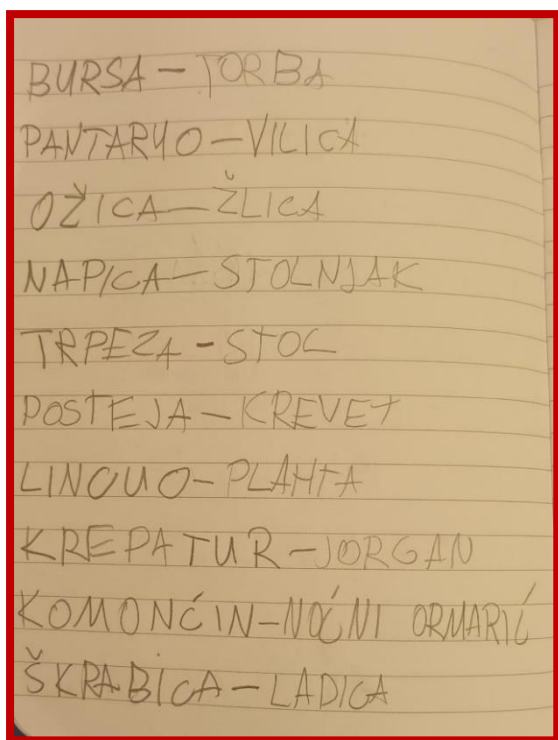 BURSA - TORBA
PANTARUO - VILICA
OŽICA - ŽLICA
NAPICA - STOLNJAK
TRPEZA - STOL
POSTEJA - KREVET
LINCUO - PLAHTA
KREPATUR - JORGAN
KOMONĆIN - NOĆNI ORMARIĆ
ŠKRABICA - LADICA